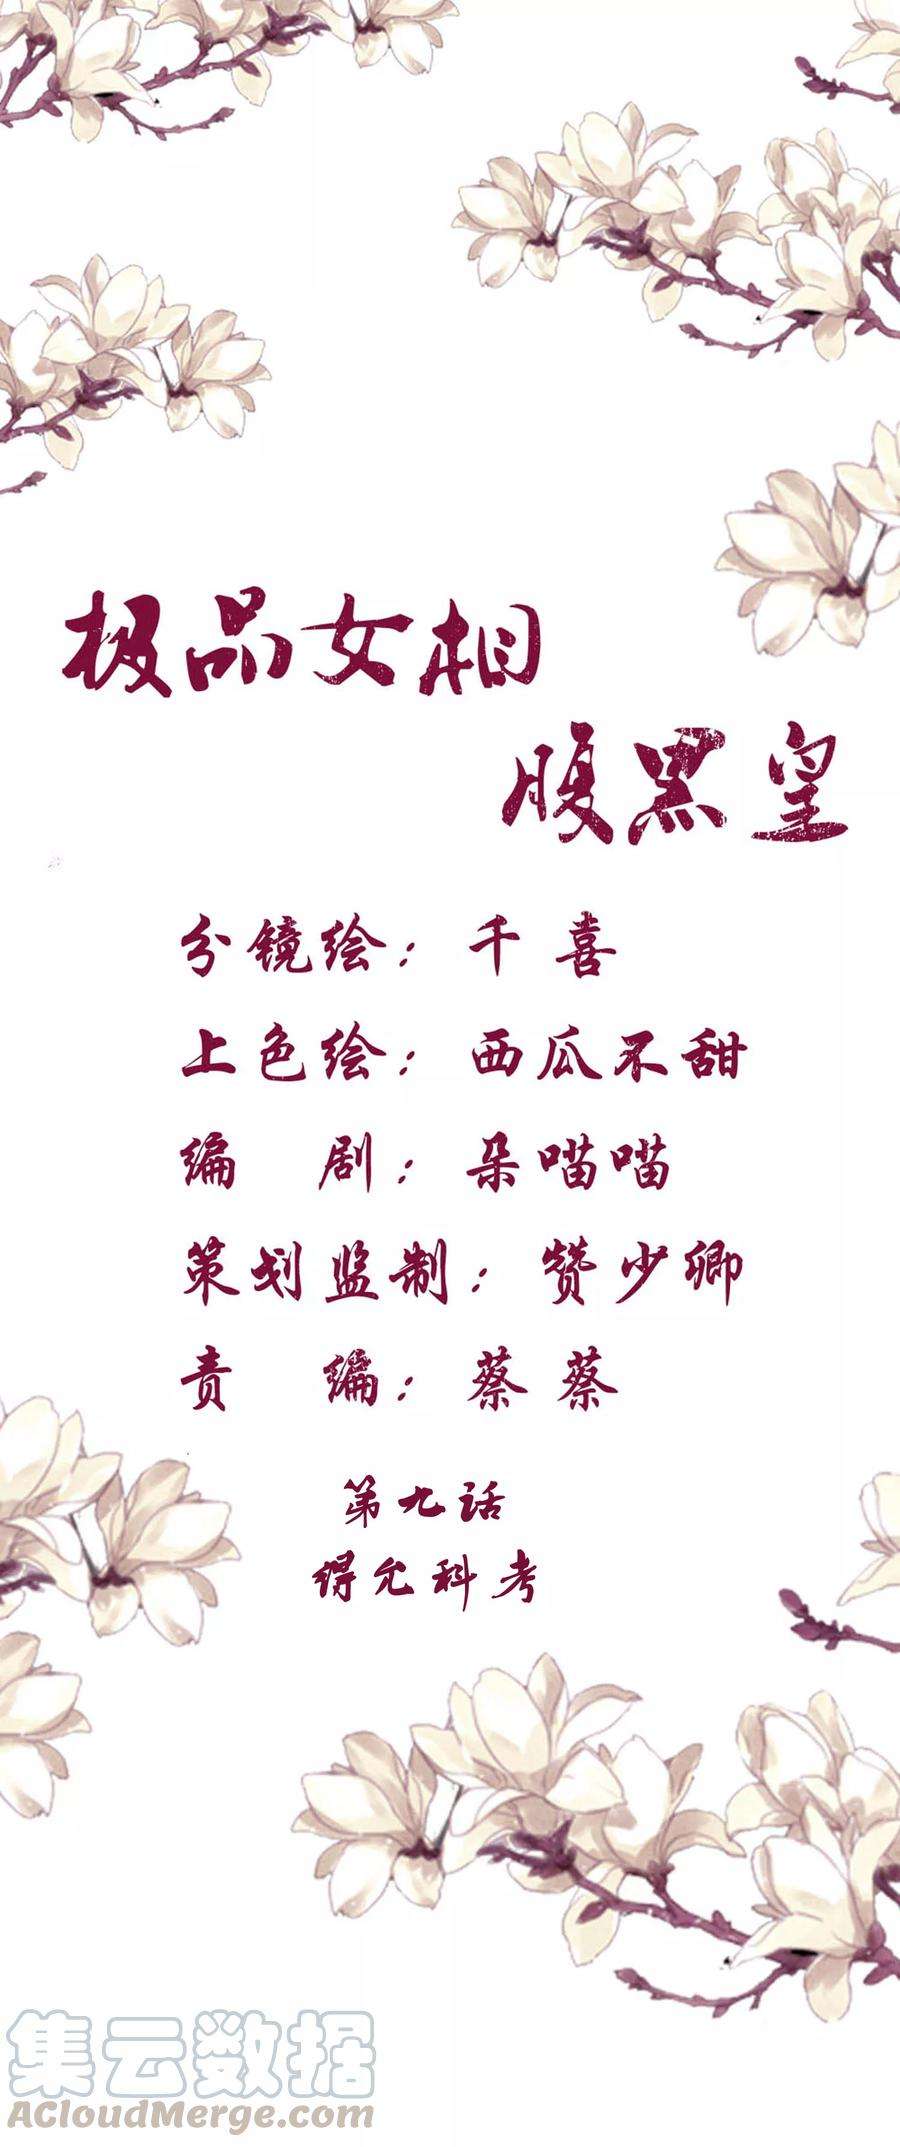 极品女相
腹黑皇
分镜绘：千喜
上色绘：西瓜不甜
编 剧：朵喵喵
策划监制：赞少卿
责 编：蔡蔡
第九话
得允科考
集云数据
ACloudMerge.com